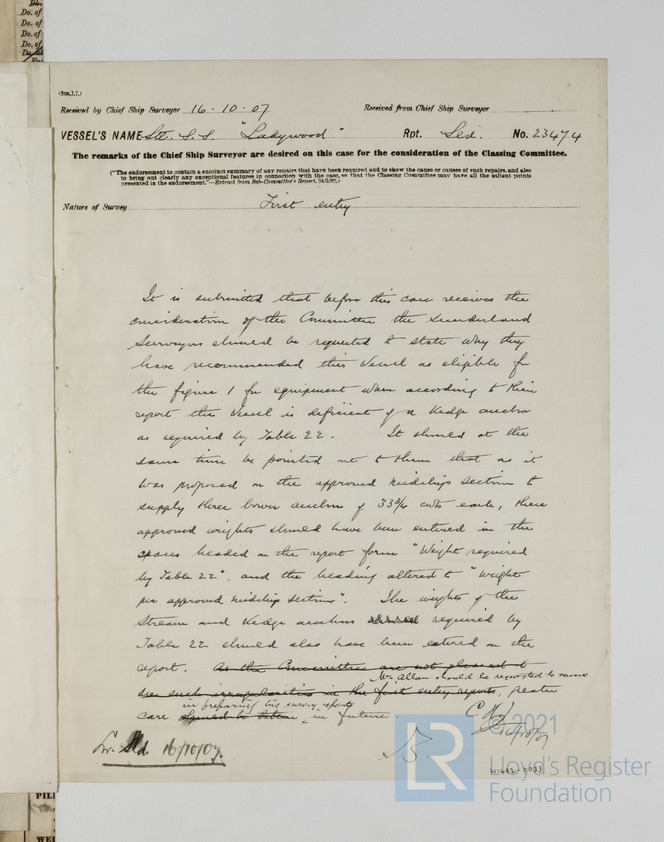 Do. of
Do. of
Do. of
Do. of
(Sun.1.7.)
Received by Chief Ship Surveyor 16.10.07 Received from Chief Ship Surveyor
VESSEL'S NAME Stl. S.S. "Ladywood" Rpt. Sld. No. 23474
The remarks of the Chief Ship Surveyor are desired on this case for the consideration of the Classing Committee.
("The endorsement to contain a succinct summary of any repairs that have been required and to show the cause or causes of such repairs, and also
to bring out clearly any exceptional features in connection with the case, so that the Classing Committee may have all the salient points
presented in the endorsement."—Extract from Sub-Committee's Report,
Nature of Survey First entry
It is submitted that before this case receives the
consideration of the Committee the Sunderland
Surveyors should be requested to state why they
have recommended this Vessel as eligible for
the figure 1 for equipment when according to their
report the Vessel is deficient of a Kedge anchor
as required by Table 22. It should at the
same time be pointed out to them that as it
was proposed on the approved midship section to
supply three bower anchors of 33¾ cwts each, these
approved weights should have been entered in the
spaces headed on the report form "Weight required
by Table 22", and the heading altered to "Weight
per approved midship section". The weights of the
Stream and Kedge anchors required by
Table 22 should also have been entered on the
report. As the Committee are not pleased to
Mr. Allan should be requested to exercise
see such irregularities in the first entry reports, greater
in preparing his survey reports
care in future
16/10/07
Lr. Sld. 16/10/07.
© 2021
LR
Lloyd's Register
Foundation
W1482-0033
PIL
WEL